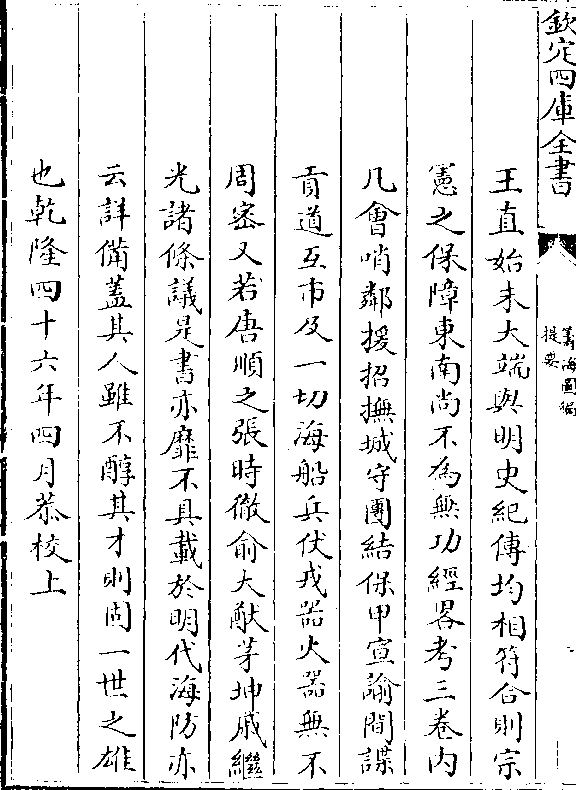 欽定四庫全書
籌海圖編
提要
王直始末大端與明史紀傳均相符合則宗
憲之保障東南尚不為無功經畧考三卷内
凡會哨鄰援招撫城守團結保甲宣諭間諜
貢道互市及一切海船兵仗戎器火器無不
周密又若唐順之張時徹俞大猷茅坤戚繼
光諸條議是書亦靡不具載於明代海防亦
云詳備蓋其人雖不醇其才則固一世之雄
也乾隆四十六年四月恭校上